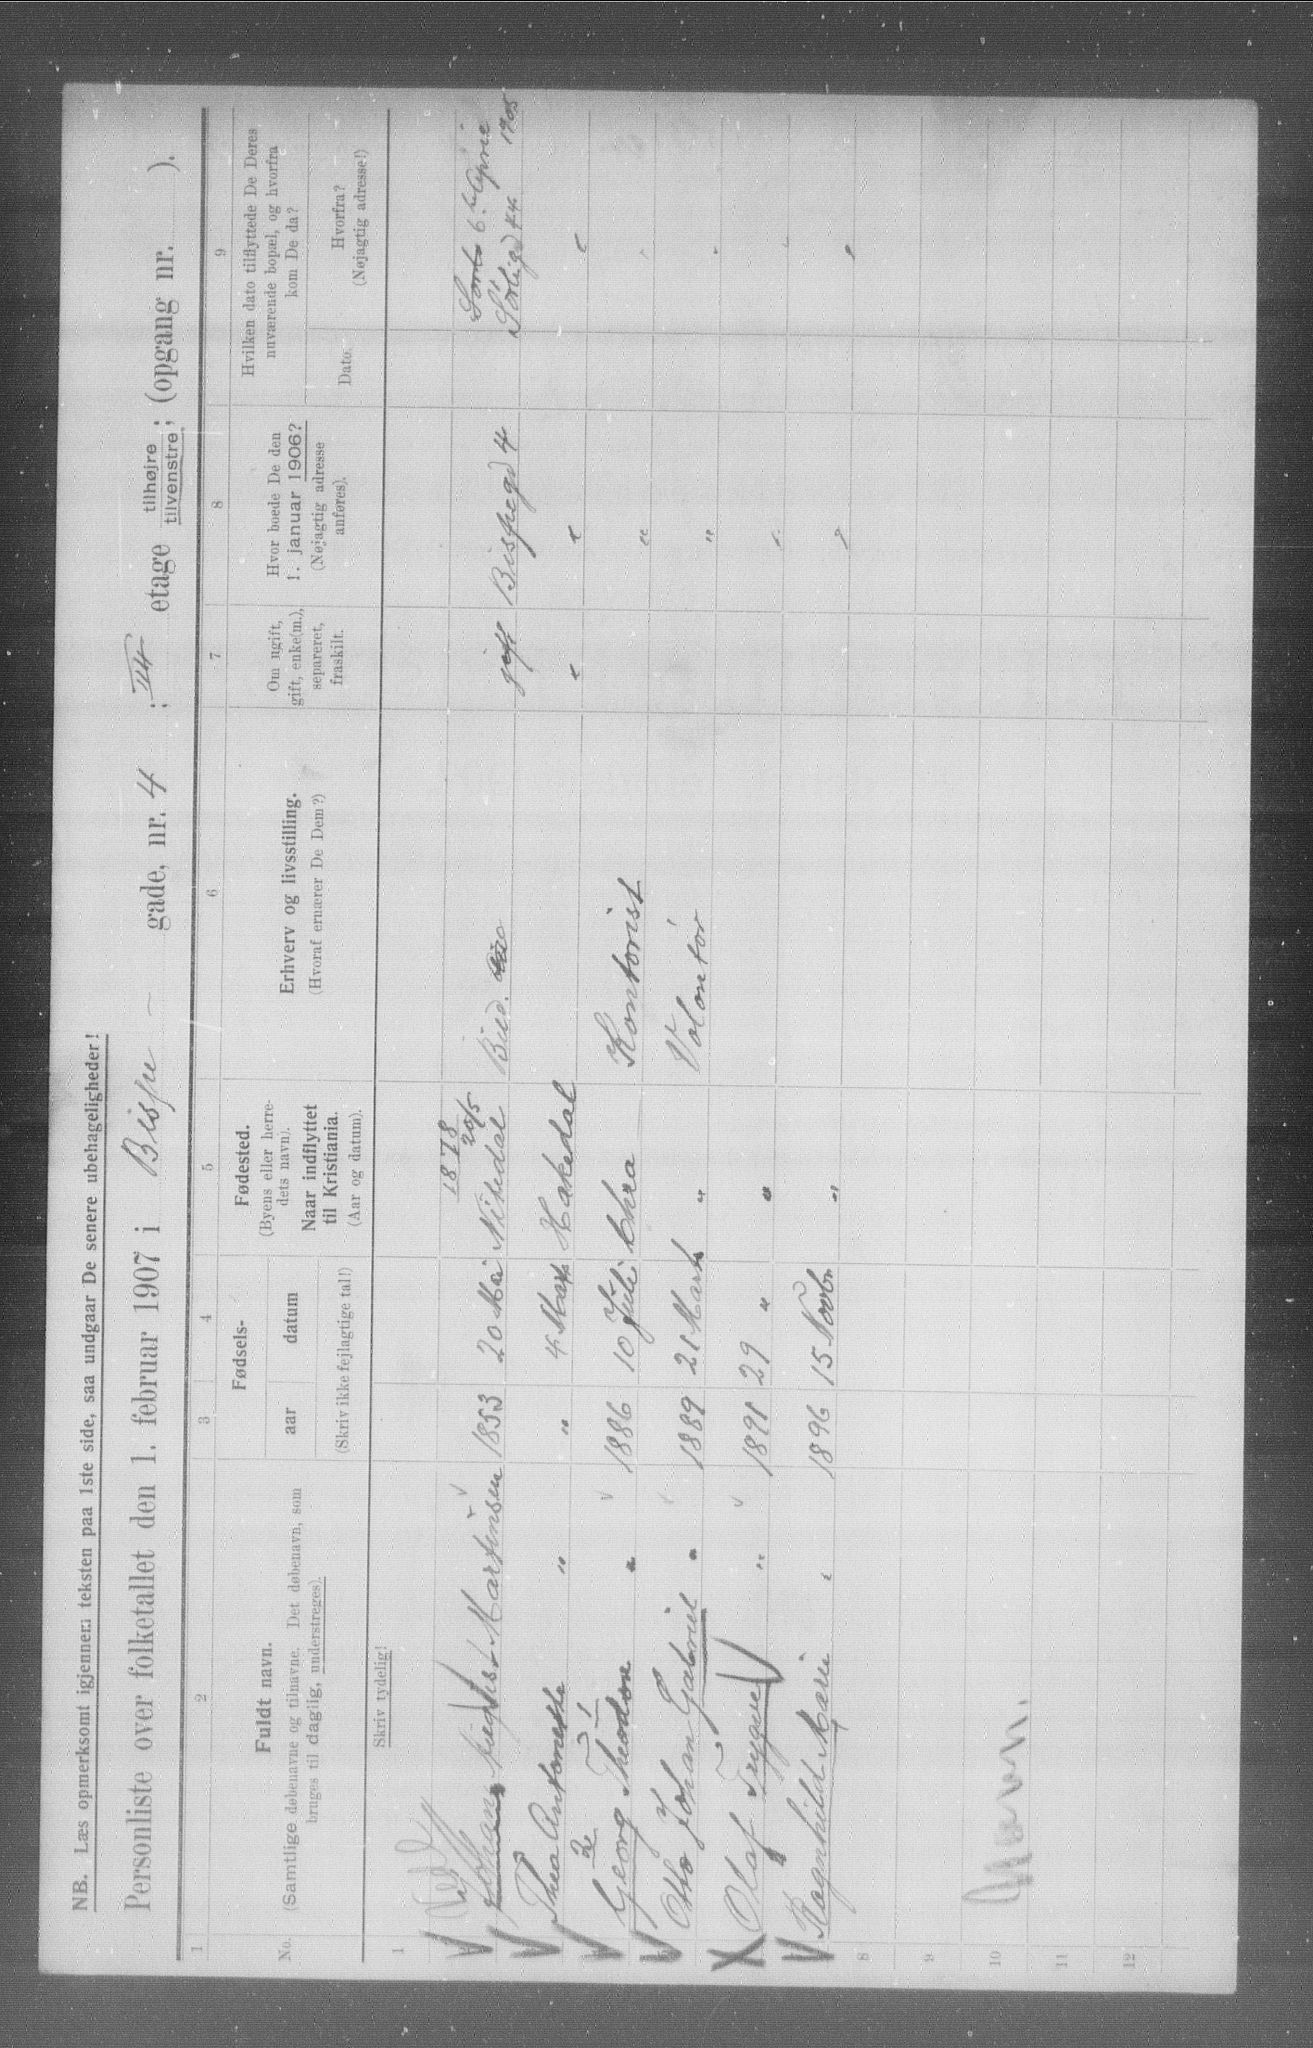 NB. Læs opmerksomt igjennem teksten paa 1ste side, saa undgaar De senere ubehageligheder!
Personliste over folketallet den 1. februar 1907 i Bispe gade, nr. 4 ; III etage tilhøjre tilvenstre; (opgang nr. ).
1 2 3 4 5 6 7 8 9
No.
Fuldt navn.
(Samtlige døbenavne og tilnavne. Det døbenavn, som
bruges til daglig, understreges).
Fødsels-
aar datum
(Skriv ikke fejlagtige tal!)
Fødested.
(Byens eller herre-
dets navn).
Naar indflyttet
til Kristiania.
(Aar og datum).
Erhverv og livsstilling.
(Hvoraf ernærer De Dem?)
Om ugift,
gift, enke(m.),
separeret,
fraskilt.
Hvor boede De den
1. januar 1906?
(Nøjagtig adresse
anføres).
Hvilken dato tilflyttede De Deres
nuværende bopæl, og hvorfra
kom De da?
Dato.
Hvorfra?
(Nøjagtig adresse!)
Skriv tydelig!
1
1878 20/5
Johan August Martinsen 1853 20 Mai Nitedal Bud. gift Bispegd 4 6 April
Sørligd 44 1905
Thea Antonette " " 4 Marts Hakedal " " "
Georg Theodor " 1886 10 Juli Chra Kontorist " "
Otto Johan Gabriel " 1889 21 Marts " Volontør " "
Olaf Trygve " 1891 29 " " " "
Ragnhild Marie " 1896 15 Novbr " " "
8
9
10
11
12